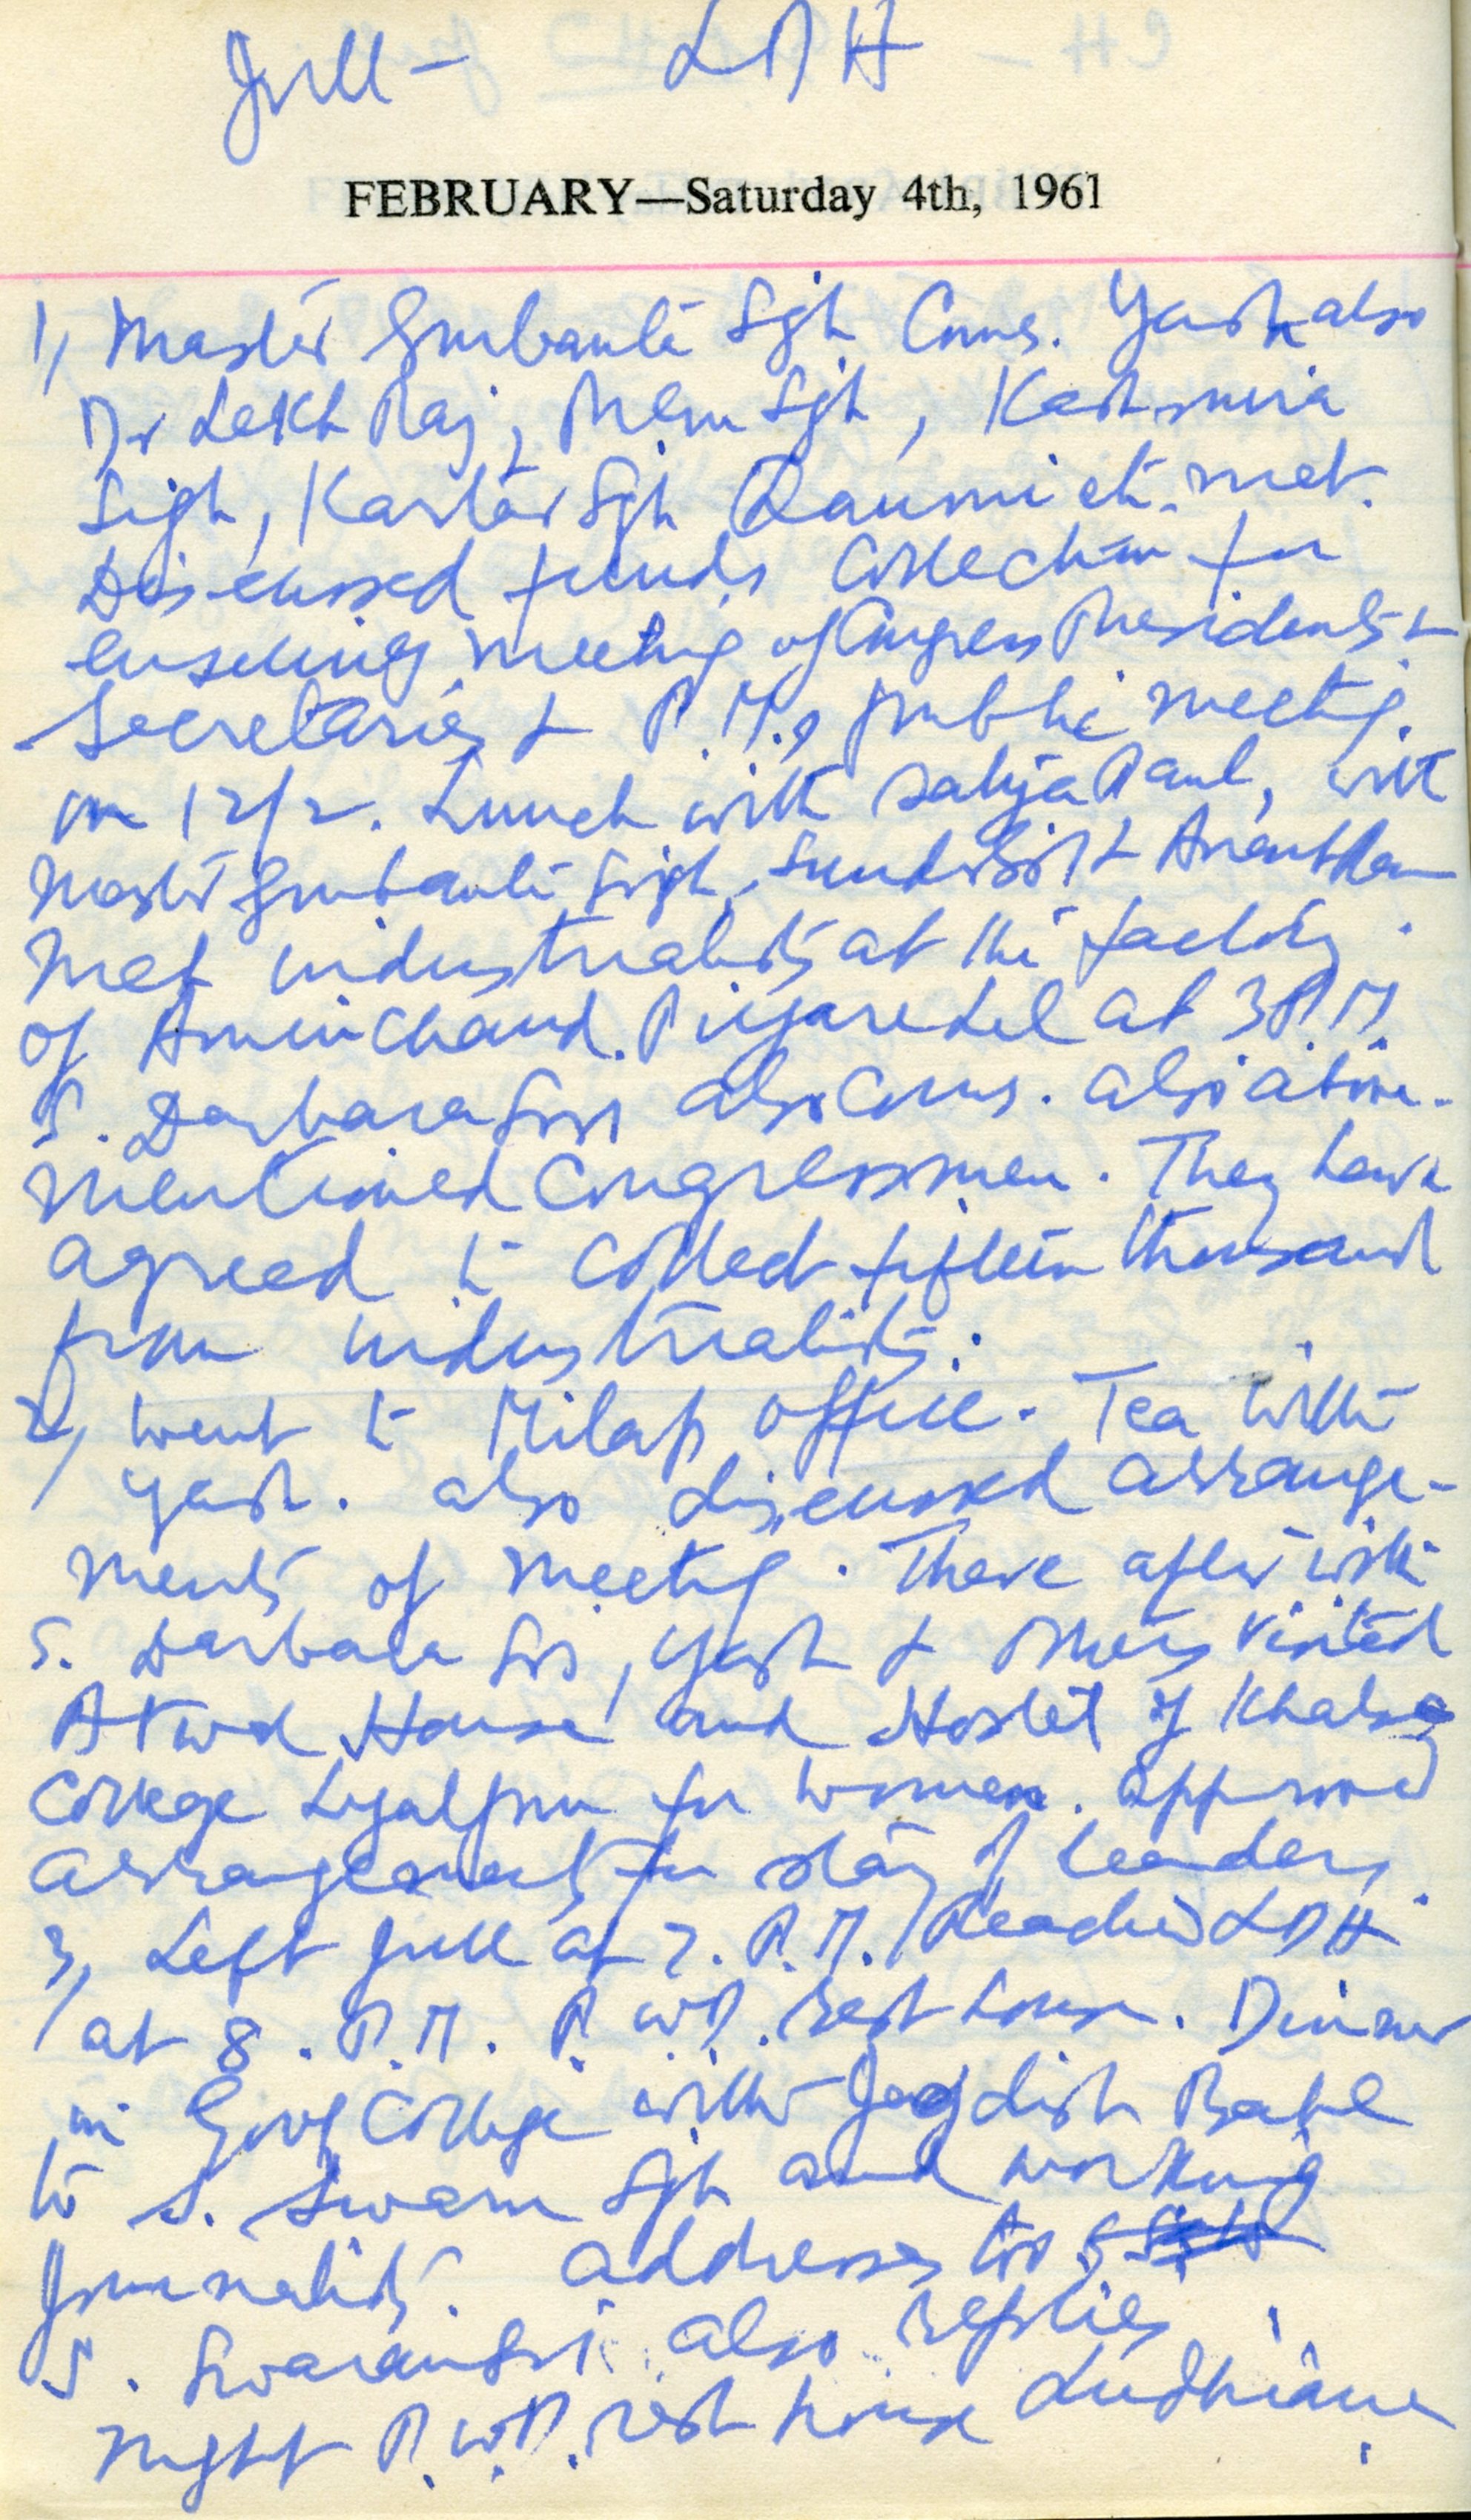 Jull - LDH
FEBRUARY—Saturday 4th, 1961
1, Master Gurbanta Sgh Comes. Yash also
Dr Lekh Raj, Prem Sgh, Kashmira
Sigh, Kartar Sgh Qaumi etc. met.
Discussed funds collection for
ensuing meeting of Congress Presidents &
Secretaries & P.M.s public meeting.
on 12/2. Lunch with Satya Paul, with
Master Gurbanta Sigh,
Met industrialists at the factory.
of Aminchand. Piyare Lal at 3 P.M.
S. Darbara Sigh also comes. also above-
mentioned Congressmen. They have
agreed to collect fifteen thousand
from industrialists.
2, Went to Milap office. Tea with
Yash. also discussed arrange-
ments of meeting. There after with
S. Darbara Sigh, Yash & others visited
House and Hostel of Khalsa
College Lyalpur for women. approved
arrangements for stay of leaders.
3, Left Jull at 7. P.M. Reached LDH
at 8. P.M. P.W.D. rest house. Dinner
in Govt College with Jagdish
to S. Swarn Sgh and working
Journalists. addresses too
S. Swaran Sigh also replies.
Night P.W.D. rest house Ludhiana.